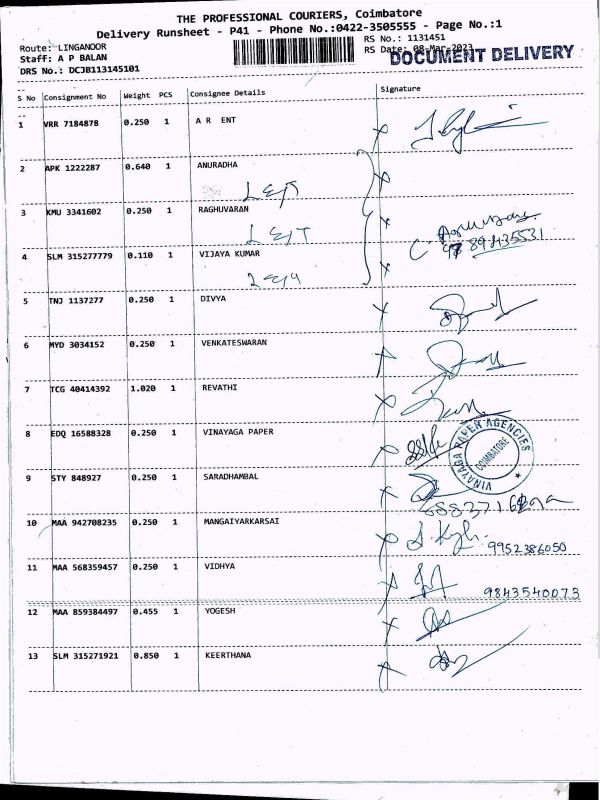 THE PROFESSIONAL COURIERS, Coimbatore
Delivery Runsheet - P41 - Phone No.:0422-3505555 - Page No.:1
Route: LINGANOOR
RS No.: 1131451
Staff: A P BALAN
RS Date: 08-Mar-2023
DOCUMENT DELIVERY
DRS No.: DCJB113145101
S No Consignment No Weight PCS Consignee Details Signature
1 VRR 7184878 0.250 1 A R ENT
2 APK 1222287 0.640 1 ANURADHA
3 KMU 3341602 0.250 1 RAGHUVARAN
4 SLM 315277779 0.110 1 VIJAYA KUMAR
5 TNJ 1137277 0.250 1 DIVYA
6 MYD 3034152 0.250 1 VENKATESWARAN
7 TCG 40414392 1.020 1 REVATHI
8 EDQ 16588328 0.250 1 VINAYAGA PAPER
VINAYAGA PAPER AGENCIES
COIMBATORE
9 STY 848927 0.250 1 SARADHAMBAL
10 MAA 942708235 0.250 1 MANGAIYARKARSAI
9952386050
11 MAA 568359457 0.250 1 VIDHYA
9843540073
12 MAA 859384497 0.455 1 YOGESH
13 SLM 315271921 0.850 1 KEERTHANA